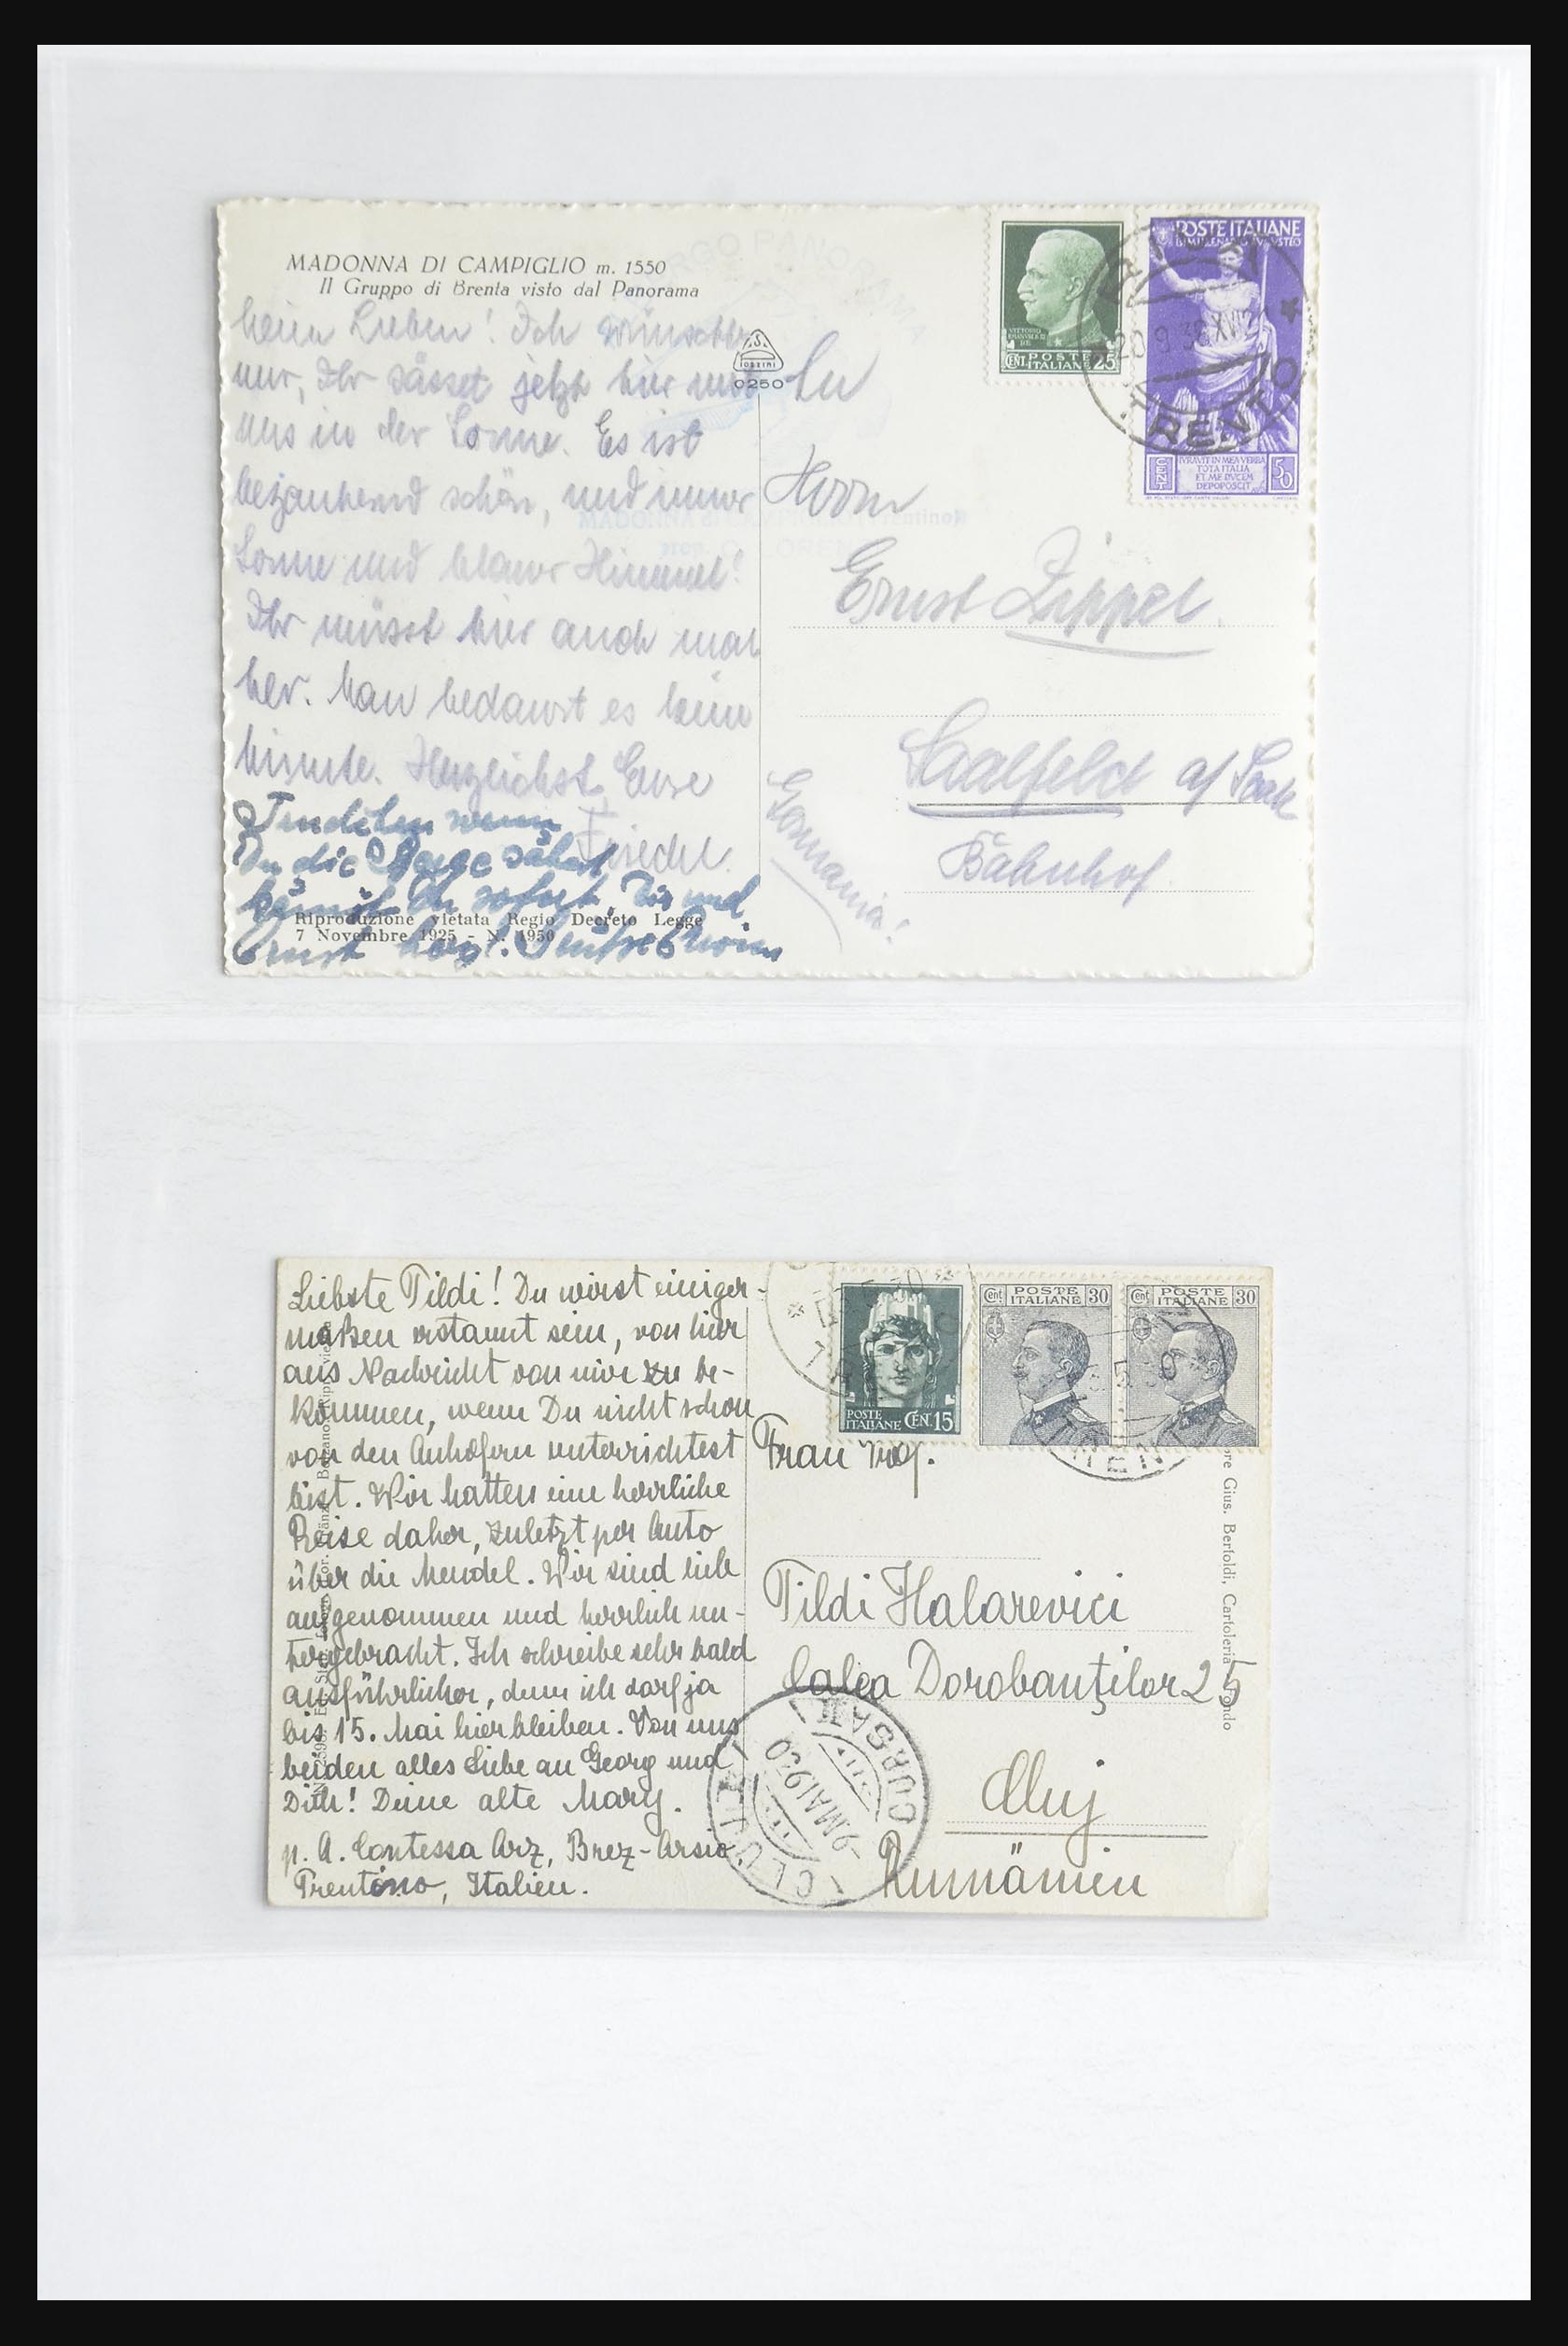 MADONNA DI CAMPIGLIO m. 1550
Il Gruppo di Brenta visto dal Panorama
Meine Lieben! Ich wünschte
nur, Ihr sässet jetzt hier mit
uns in der Sonne. Es ist
bezaubernd schön, und immer
Sonne und blauer Himmel!
Ihr müsst hier auch mal
her. Man bedauert es keine
Minute. Herzlichst Eure
Friedel.
wenn
Du die Berge sähest
Du sofort. Dir und
Ernst herzl.
Riproduzione vietata Regio Decreto Legge
7 Novembre 1925 - N. 1950
0250
An
Herrn
Ernst Zippel.
Saalfeld a/ Saale
Bahnhof
Germania!
VITTORIO
EMANUELE III
RE
CENT. POSTE ITALIANE 25
POSTE ITALIANE
BIMILLENARIO AUGUSTEO
IVRAVIT IN MEA VERBA
TOTA ITALIA
ET ME DVCEM
DEPOPOSCIT
CENT 50
20 9 38 XVI
TRENTO
Liebste Tildi! Du wirst einiger-
maßen erstaunt sein, von hier
aus Nachricht von mir zu be-
kommen, wenn Du nicht schon
von den Anhöfern unterrichtest
bist. Wir hatten eine herrliche
Reise daher, zuletzt per Auto
über die Mendel. Wir sind lieb
aufgenommen und herrlich un-
tergebracht. Ich schreibe sehr bald
ausführlicher, denn ich darf ja
bis 15. Mai hierbleiben. Von uns
beiden alles Liebe an Georg und
Dich! Deine alte Mary.
p. A. Contessa Arz, Brez-Arsio
Trentino, Italien.
POSTE
ITALIANE CEN. 15
Cent POSTE ITALIANE 30
Cent POSTE ITALIANE 30
Frau Prof.
Tildi Halarevici
Calea Dorobanţilor 25
Cluj
Rumänien
CLUJ
9 MAI 930
CURSA
re Gius. Bertoldi, Cartoleria
ndo